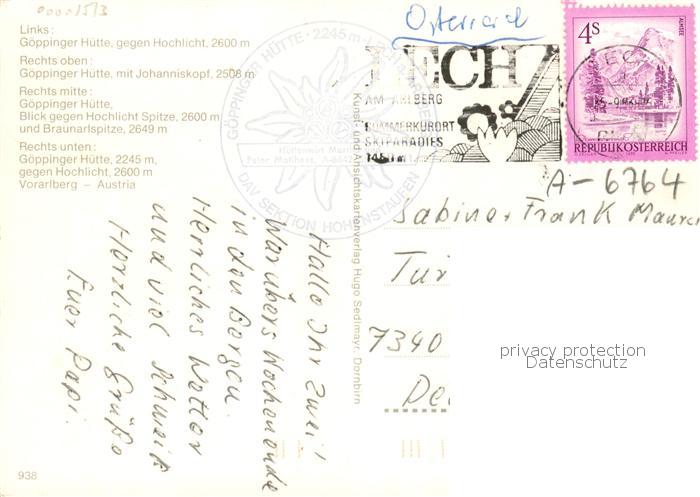 00001513
Links:
Göppinger Hütte, gegen Hochlicht, 2600 m
Rechts oben:
Göppinger Hütte, mit Johanniskopf, 2508 m
Rechts mitte:
Göppinger Hütte,
Blick gegen Hochlicht Spitze, 2600 m
und Braunarlspitze, 2649 m
Rechts unten:
Göppinger Hütte, 2245 m,
gegen Hochlicht, 2600 m
Vorarlberg – Austria
938
GÖPPINGER HÜTTE · 2245 m
Hüttenwirt
Peter
DAV SEKTION HOHENSTAUFEN
Kunst- und Ansichtskartenverlag Hugo Sedlmayr, Dornbirn
Österreich
LECH
AM ARLBERG
SOMMERKURORT
SKIPARADIES
1450 m
4S
ALMSEE
REPUBLIK ÖSTERREICH
A-6764
Sabine + Frank
7340
Hallo Ihr Zwei!
War übers Wochenende
in den Bergen.
Herrliches Wetter
und viel Schweiß
Herzliche Grüße
Euer Papi.
privacy protection
Datenschutz